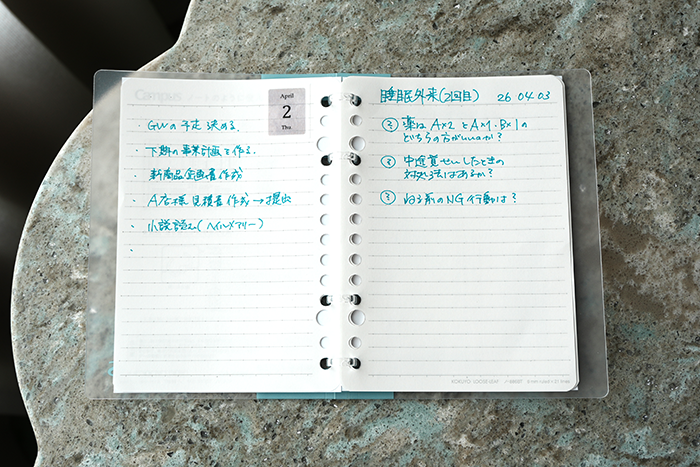 Campus
April
2
Thu
・GWの予定 決める.
・下期の事業計画を作る.
・新商品企画書作成
・A店様 見積書作成→提出
・小説読む(ヘイルメアリー)
・
睡眠外来(2回目) 26 04.03
? 薬は A×2 と A×1・B×1の
どちらの方がいいのか?
? 中途覚せいしたときの
対処法はあるか?
? 寝る前のNG行動は?
KOKUYO LOOSE-LEAF